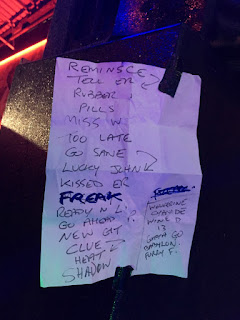 REMINSCE
TELL ER
RUBBER
PILLS
MISS W
TOO LATE
GO SANE
LUCKY JOHN
KISSED ER
FREAK
READY N L.
GO AHEAD
NEW GIT
CLUE
HEAT
SHADOW
EPISODE
WIRED
13
GONNA GO
BABYLON
FUZZY F.